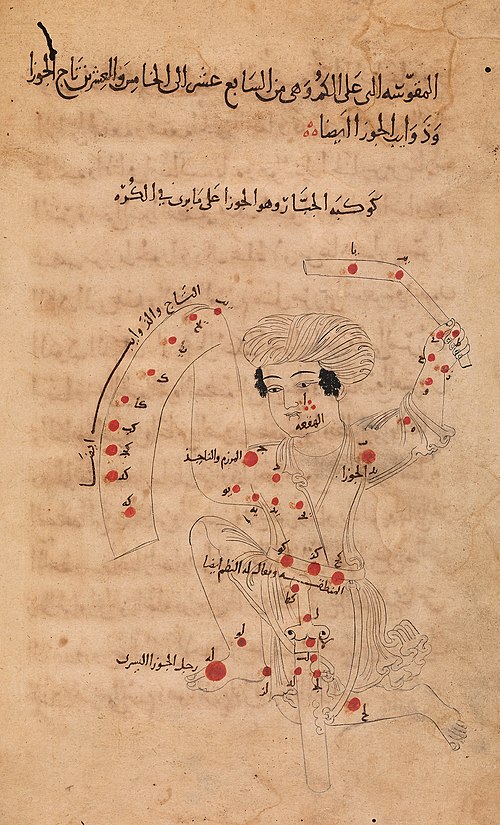 المقوّسه التى على الكم وهى من السابع عشر الى الخامس والعشرين تاج الجوزا
وذوايب الجوزا ايضا
كوكبه الجبّار وهو الجوزا على ما يرى فى الكُره
يا
يب
التاج والذوايب
ايضا
ا
الهقعه
المرزم والناجذ
يد الجوزا
كو
كز
كح
المنطقه ويقال له النظم ايضا
كط
ل
لو
له
رجل الجوزا اليسرى
لح